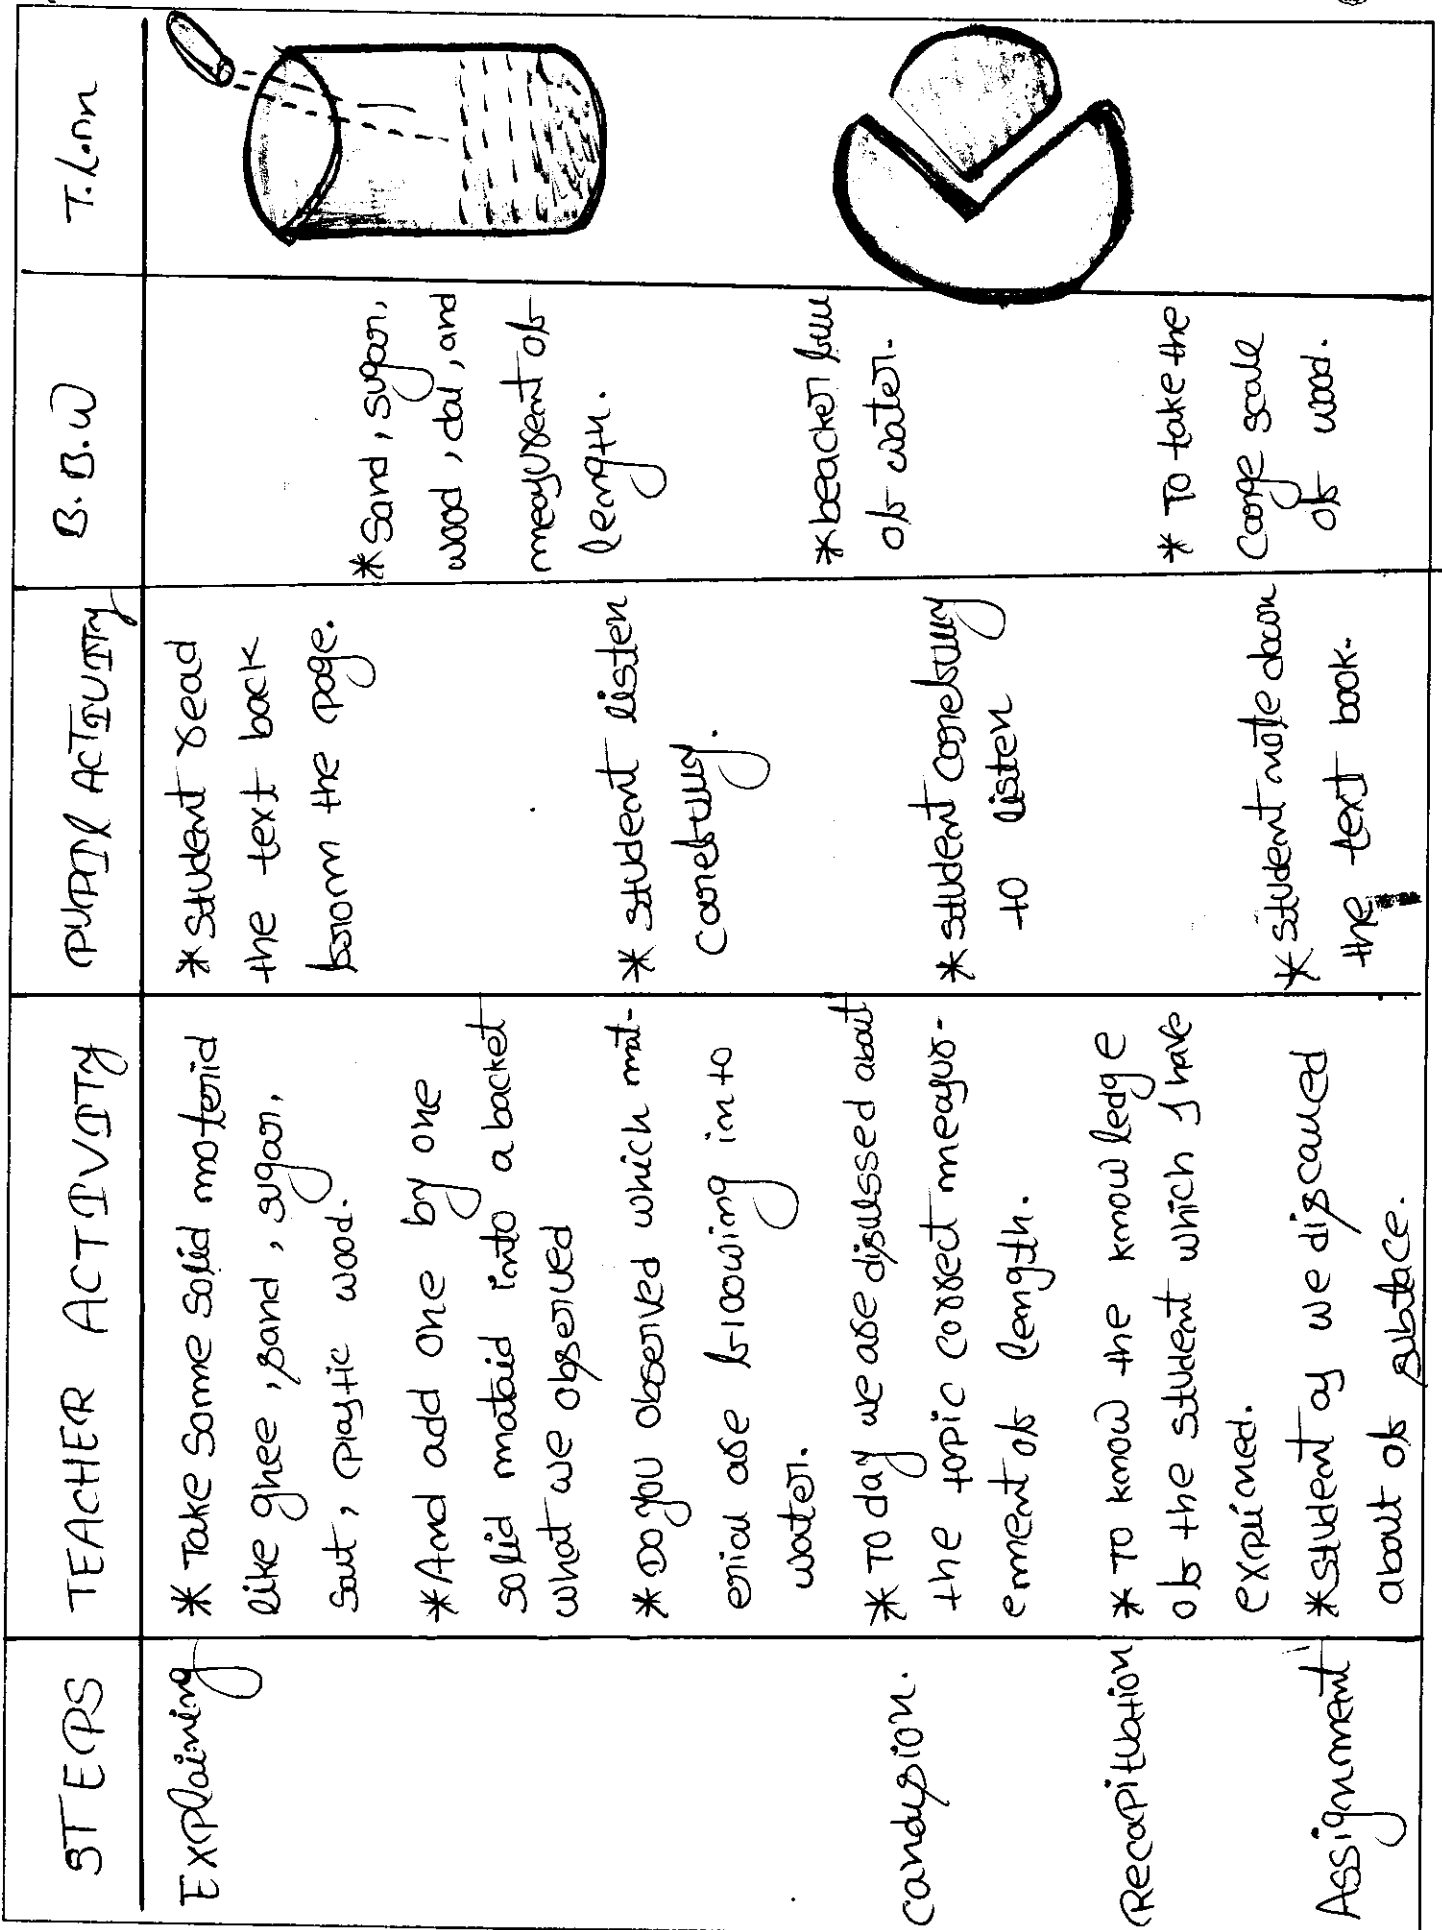 STEPS
TEACHER ACTIVITY
PUPIL ACTIVITY
B.B.W
T.L.m
Explaining
* Take Some Solid moterid
like ghee, sand, sugar,
Saut, plastic wood.
*And add one by one
solid mataid into a backet
what we observed
* Do you observed which mat-
erial are frlowing in to
water.
* student read
the text back
from the page.
* student listen
carefully.
* Sand, sugar,
wood, dal, and
measurement of
length.
* beacker full
of water.
Conclusion.
* To day we are disussed about
the topic correct measur-
ement of length.
* student carefully
to listen
Recapitulation
* To know the know ledge
of the student which I have
explined.
* To take the
Large scale
of wood.
Assignment
* student as we discaued
about of subtace.
* student note down
the text book.